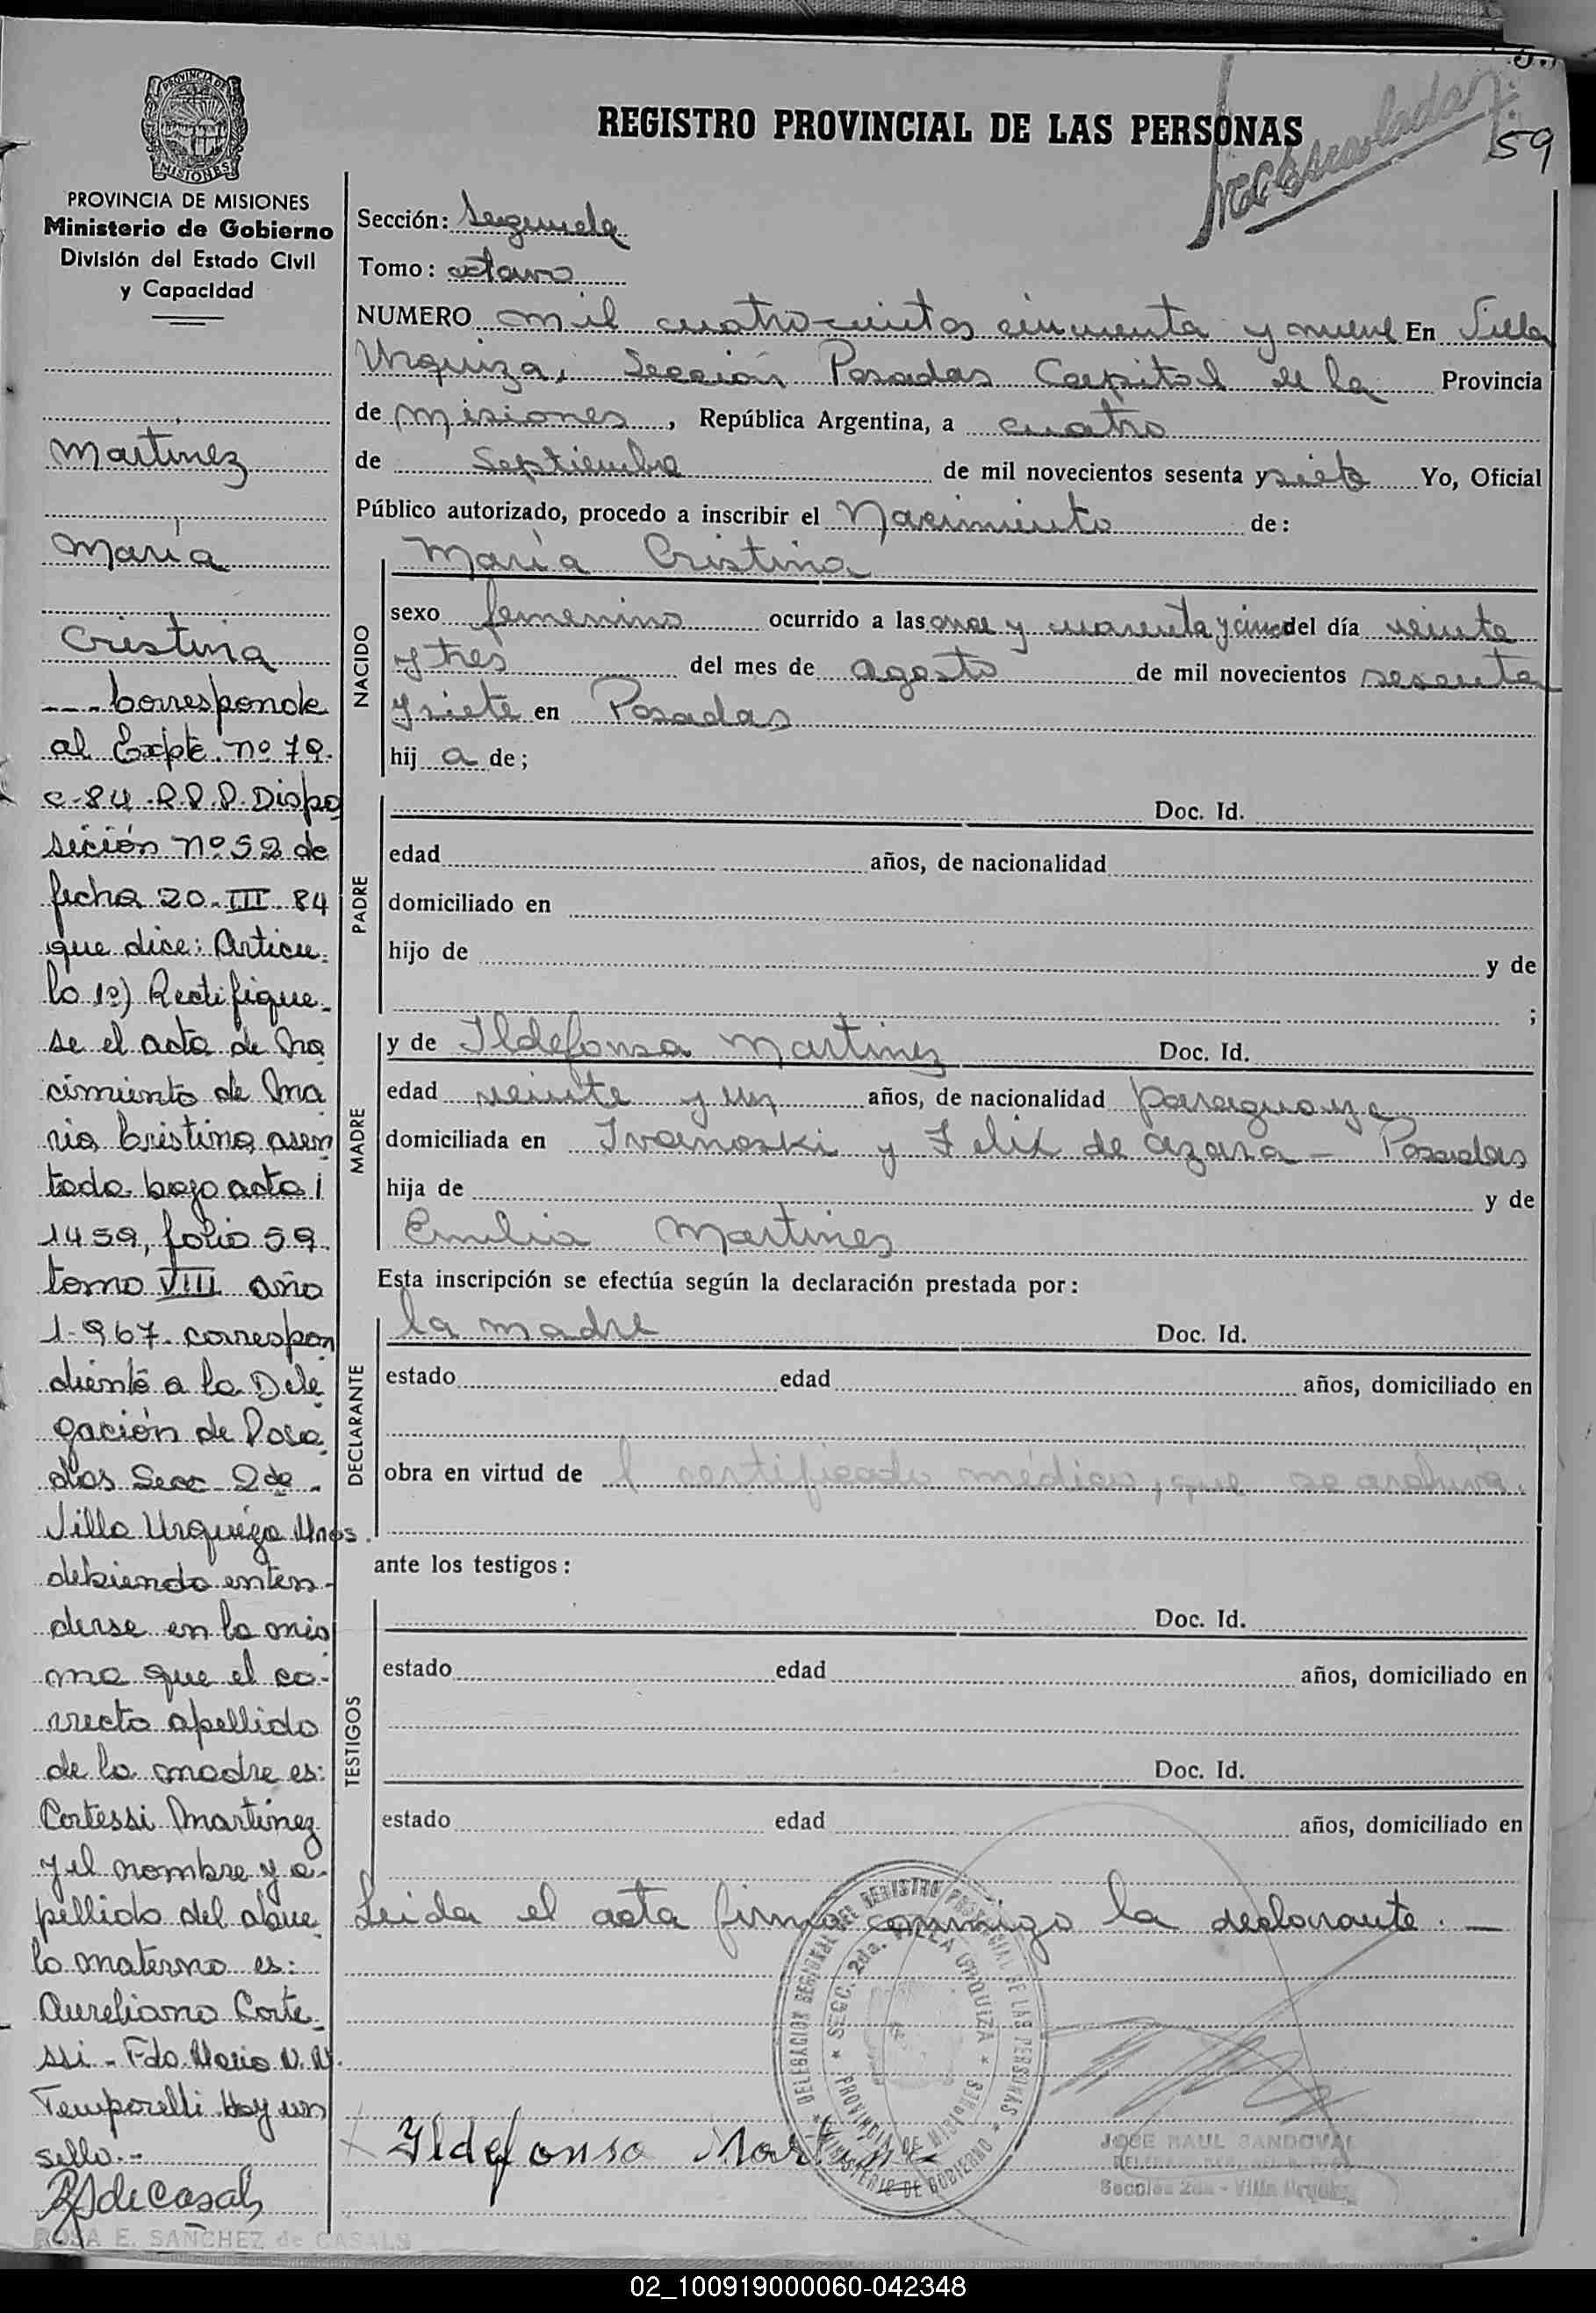 59
PROVINCIA DE MISIONES
PROVINCIA DE MISIONES
Ministerio de Gobierno
División del Estado Civil
y Capacidad
Martinez
María
Cristina
---. Corresponde
al Expte. nº 79.
c-84.R.P.P. Dispo
sición nº 52 de
fecha 20.III.84
que dice: Artícu-
lo 1º) Rectifique-
se el acta de na
cimiento de Ma
ria Cristina asen
tada bajo acta
1459, folio 59
tomo VIII año
1.967. correspon
diente a la Dele
gación de Posa
das Secc 2da.
Villa Urquiza Mnes.
debiendo enten-
derse en la mis
ma que el co-
rrecto apellido
de la madre es:
Cortessi Martinez
y el nombre y a-
pellido del abue
lo materno es:
Aureliano Corte-
ssi - Fdo. Mario N. R.
Temporelli. Hay un
sello.-
RSdeCasals
ROSA E. SANCHEZ de CASALS
REGISTRO PROVINCIAL DE LAS PERSONAS
Sección: Segunda
Tomo: octavo
NUMERO mil cuatrocientos cincuenta y nueve En Villa
Urquiza, Sección Posadas Capital de la Provincia
de Misiones, República Argentina, a cuatro
de Septiembre de mil novecientos sesenta y siete Yo, Oficial
Público autorizado, procedo a inscribir el Nacimiento de:
María Cristina
NACIDO
sexo femenino ocurrido a las once y cuarenta y cinco del día veinte
y tres del mes de agosto de mil novecientos sesenta
y siete en Posadas
hij a de;
PADRE
Doc. Id.
edad años, de nacionalidad
domiciliado en
hijo de y de
;
MADRE
y de Ildefonsa Martinez Doc. Id.
edad veinte y un años, de nacionalidad paraguaya
domiciliada en Ivanoski y Felix de Azara - Posadas
hija de y de
Emilia Martines
Esta inscripción se efectúa según la declaración prestada por:
DECLARANTE
la madre Doc. Id.
estado edad años, domiciliado en
obra en virtud de l certificado médico, que se archiva.
ante los testigos:
TESTIGOS
Doc. Id.
estado edad años, domiciliado en
Doc. Id.
estado edad años, domiciliado en
Leida el acta firma conmigo la declarante. -
DELEGACION REGIONAL DEL REGISTRO PROVINCIAL DE LAS PERSONAS
SECC. 2da. VILLA URQUIZA
PROVINCIA DE MISIONES
MINISTERIO DE GOBIERNO
Ildefonsa Martinez
JOSE RAUL SANDOVAL
Sección 2da - Villa Urquiza
02_100919000060-042348